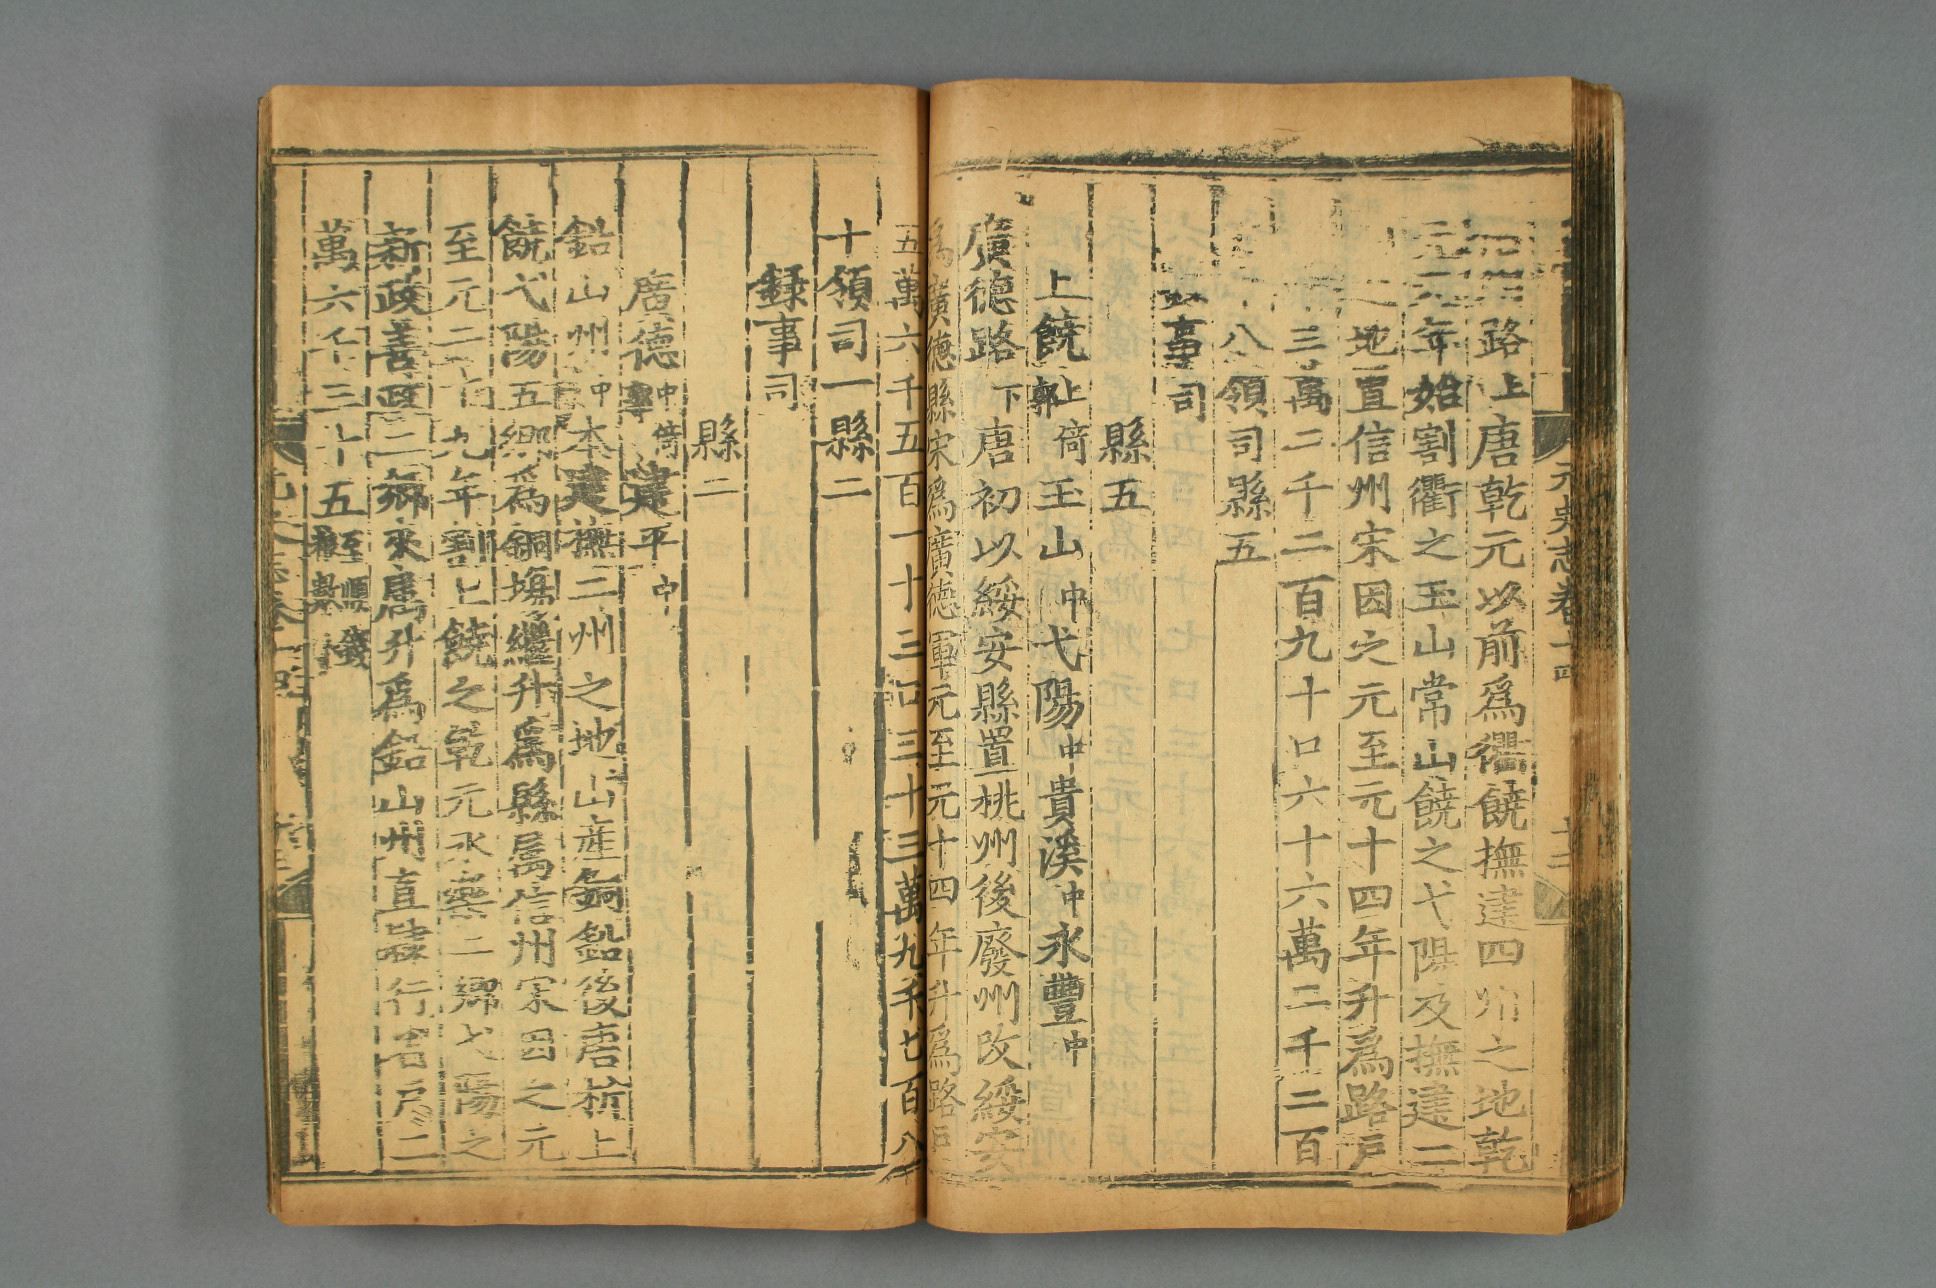 元史志卷十四
路上唐乾元以前爲衢饒撫建四州之地乾
元元年始割衢之玉山常山饒之弋陽及撫建二
之地置信州宋因之元至元十四年升爲路戶
三萬二千二百九十口六十六萬二千二百
八領司縣五
事司
縣五
上饒上倚郭玉山中弋陽中貴溪中永豐中
廣德路下唐初以綏安縣置桃州後廢州改綏安
爲廣德縣宋爲廣德軍元至元十四年升爲路戶
五萬六千五百一十三口三十三萬九千七百八
十領司一縣二
錄事司
縣二
廣德中倚郭建平中
鉛山州中本建撫二州之地山產銅鉛後唐析上
饒弋陽五鄉爲銅場繼升爲縣屬信州宋因之元
至元二十九年割上饒之乾元永樂二鄉弋陽之
新政善政二鄉來屬升爲鉛山州直隸行省戶二
萬六千三十五至順錢糧數